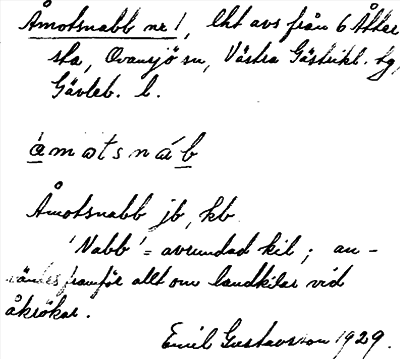 Åmotsnabb nr 1, lht avs från 6 Åtter
sta, Ovansjö sn, Västra Gästrikl. tg,
Gävleb. l.
åmotsnáb
Åmotsnabb jb, kb
'Nabb' = avrundad kil; an-
vändes framför allt om landkilar vid
åkrökar.
Emil Gustavsson 1929.